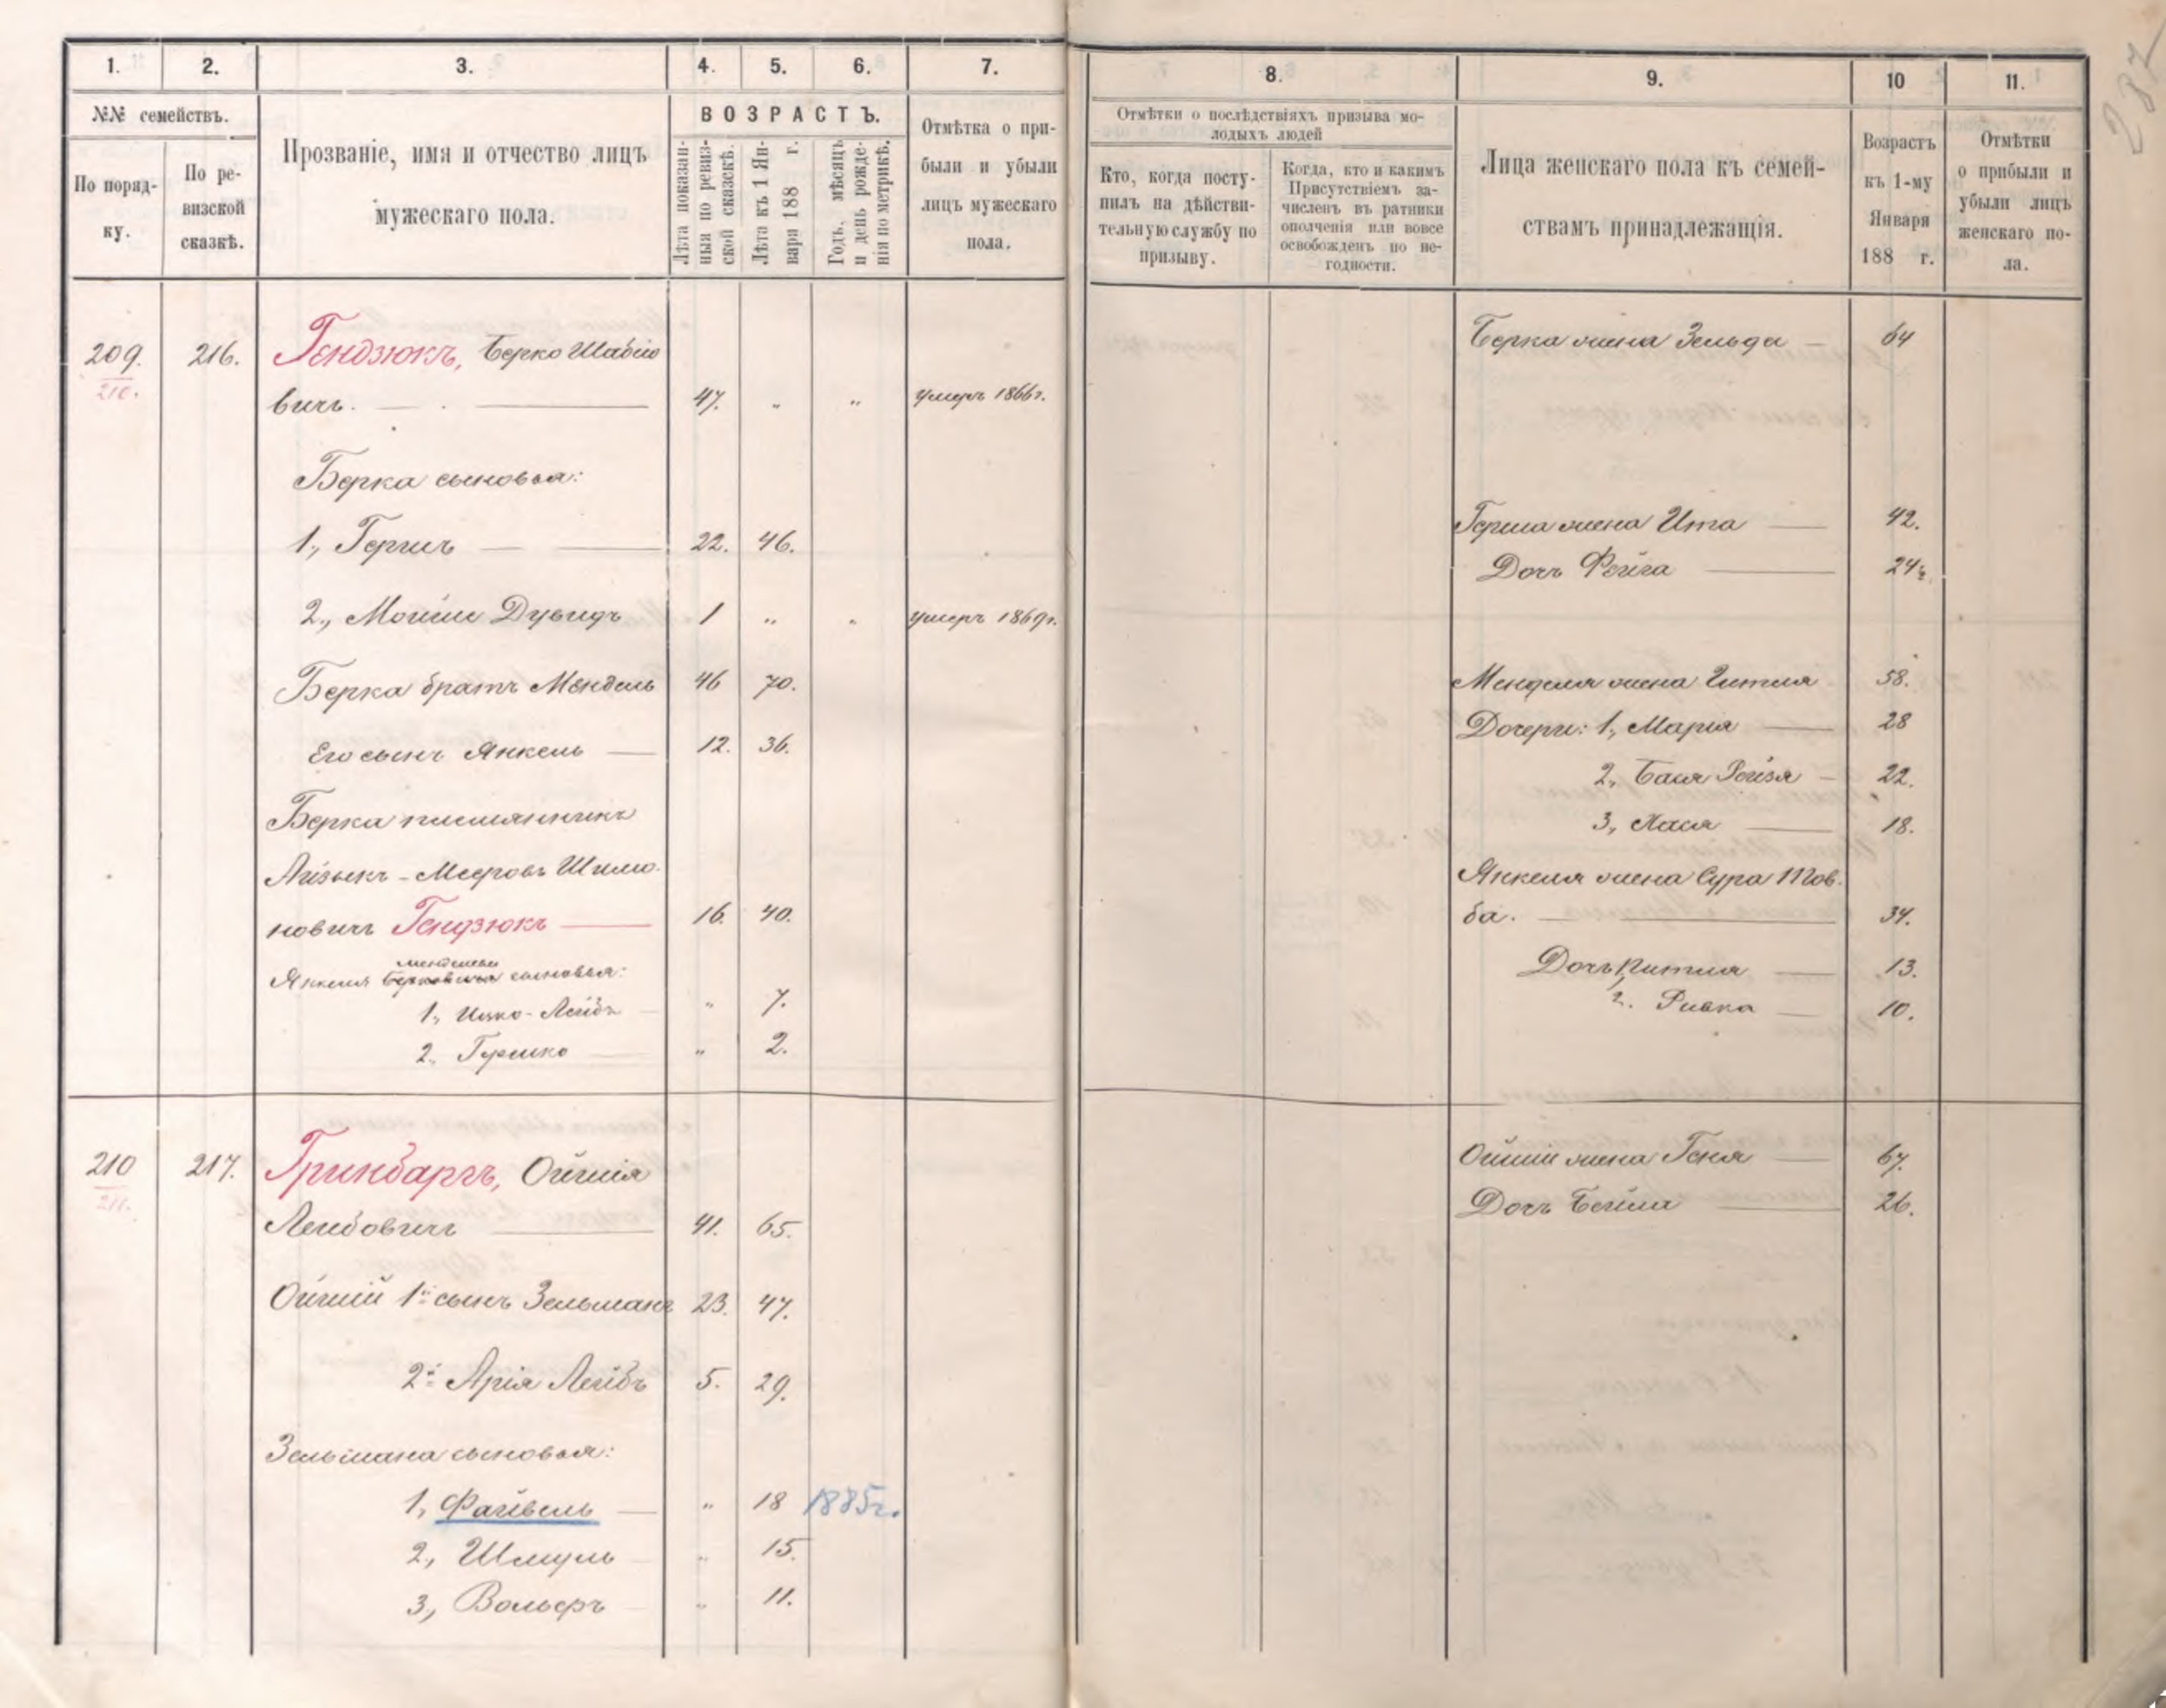 287
1. 2. 3. 4. 5. 6. 7. 8. 9. 10 11.
№№ семействъ.
По поряд-
ку.
По ре-
визской
сказкѣ.
Прозваніе, имя и отчество лицъ
мужескаго пола.
ВОЗРАСТЪ.
Лѣта показан-
ныя по ревиз-
ской сказкѣ.
Лѣта къ 1 Ян-
варя 188 г.
Годъ, мѣсяцъ
и день рожде-
нія по метрикѣ.
Отмѣтка о при-
были и убыли
лицъ мужескаго
пола.
Отмѣтки о послѣдствіяхъ призыва мо-
лодыхъ людей
Кто, когда посту-
пилъ на дѣйстви-
тельную службу по
призыву.
Когда, кто и какимъ
Присутствіемъ за-
численъ въ ратники
ополченія или вовсе
освобожденъ по не-
годности.
Лица женскаго пола къ семей-
ствамъ принадлежащія.
Возрастъ
къ 1-му
Января
188 г.
Отмѣтки
о прибыли и
убыли лицъ
женскаго по-
ла.
209. 216. Гендзюкъ, Берко Шабсіо
210.
вичъ. 47. " " умеръ 1866г.
Берка сыновья:
1., Гершъ 22. 46.
2., Мойше Дувидъ 1 " " умеръ 1869г.
Берка братъ Мендель 46 70.
Его сынъ Янкель 12. 36.
Берка племянникъ
Айзыкъ-Мееровъ Шимо-
новичъ Гендзюкъ 16. 40.
Менделева
Янкеля Берковича сыновья:
1., Ицко-Лейбъ " 7.
2., Гершко " 2.
Берка жена Зельда 64
Герша жена Ита 42.
Дочь Фейга 24½
Менделя жена Гитля 58.
Дочери: 1., Марія 28
2., Бася Рейзя 22.
3., Хася 18.
Янкеля жена Сура Тов-
ба. 34.
Дочь Китля 13.
2. Ривка 10.
210 217. Гринбаргъ, Ойшія
211.
Лейбовичъ 41. 65.
Ойшій 1й сынъ Зельманъ 23. 47.
2й Арія Лейбъ 5. 29.
Зельмана сыновья:
1., Файвель " 18 1885г.
2., Шмуль " 15.
3., Вольфъ " 11.
Ойшій жена Геня 67.
Дочь Бейла 26.